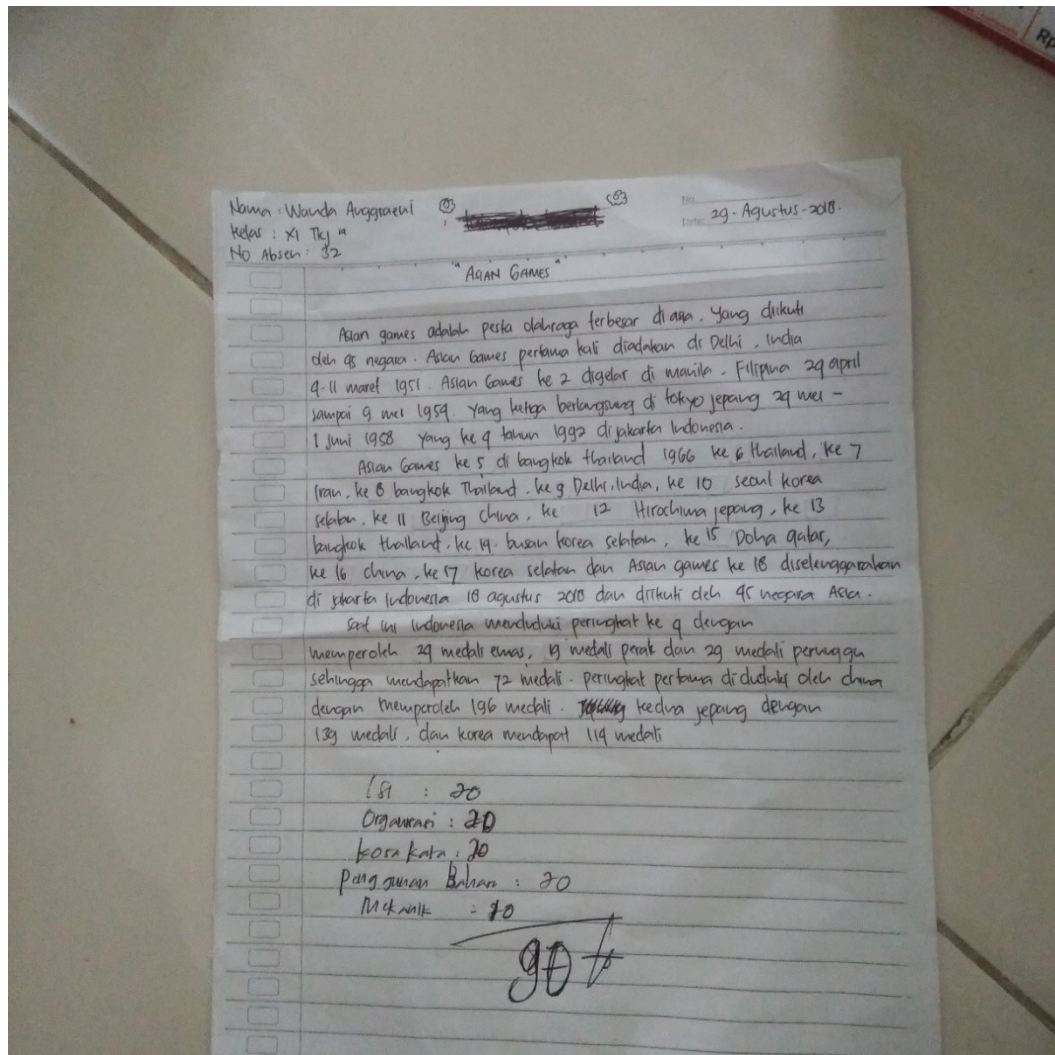 Nama : Wanda Anggraeni
Kelas : XI TKJ
No Absen : 32
No
Date
29 - Agustus - 2018.
"ASIAN GAMES"
Asian games adalah pesta olahraga terbesar di asia. Yang diikuti
oleh 45 negara. Asian Games pertama kali diadakan di Delhi, India
4-11 maret 1951. Asian Games ke 2 digelar di manila. Filipina 29 april
sampai 9 mei 1954. Yang ketiga berlangsung di tokyo jepang 24 mei -
1 Juni 1958 Yang ke 4 tahun 1992 di jakarta Indonesia.
Asian Games ke 5 di bangkok thailand 1966 ke 6 thailand, ke 7
Iran, ke 8 bangkok Thailand. ke 9 Delhi, India, ke 10 seoul korea
selatan. ke 11 Beijing China, ke 12 Hirochima jepang, ke 13
bangkok thailand, ke 14. busan korea selatan, ke 15 Doha qatar,
ke 16 china, ke 17 korea selatan dan Asian games ke 18 diselenggarakan
di jakarta Indonesia 18 agustus 2018 dan diikuti oleh 45 negara Asia.
Saat ini Indonesia menduduki peringkat ke 4 dengan
memperoleh 24 medali emas, 19 medali perak dan 29 medali perunggu
sehingga mendapatkan 72 medali. peringkat pertama diduduki oleh china
dengan memperoleh 196 medali. kedua jepang dengan
139 medali, dan korea mendapat 114 medali
Isi : 20
Organisasi : 20
kosa kata : 20
penggunan Bahan : 20
Meknik : 10
90
Rp